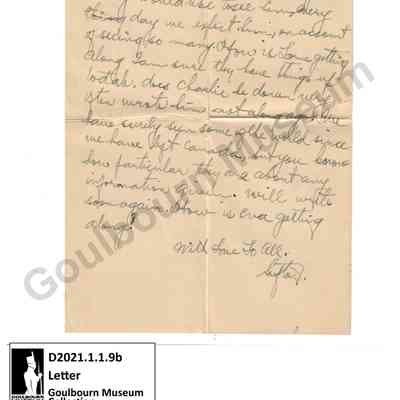 would use were him, every
thing day we expect him, on account
of seeing so many. How is Lome getting
along I am sure they have things up
to dak. does Charlie be down.
wrote him not long ago. We
have surely seen some old world since
we have left Canada, but you know
how particular they are about any
information given. Will write
soon again. How is eva getting
along?
With Love To All.
Goulbourn Museum
D2021.1.1.9b
Letter
Goulbourn Museum
Collection
GOULBOURN